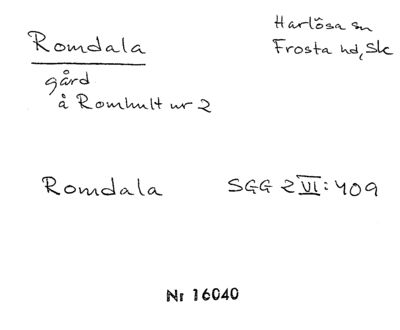 Romdala
Harlösa sn
Frosta hd, Sk
gård
å Romhult nr 2
Romdala SGG 2 VI: 409
Nr 16040